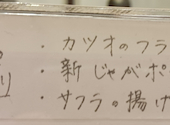 ・カツオのフラ
・新じゃがポ
り ・サフラの揚げ